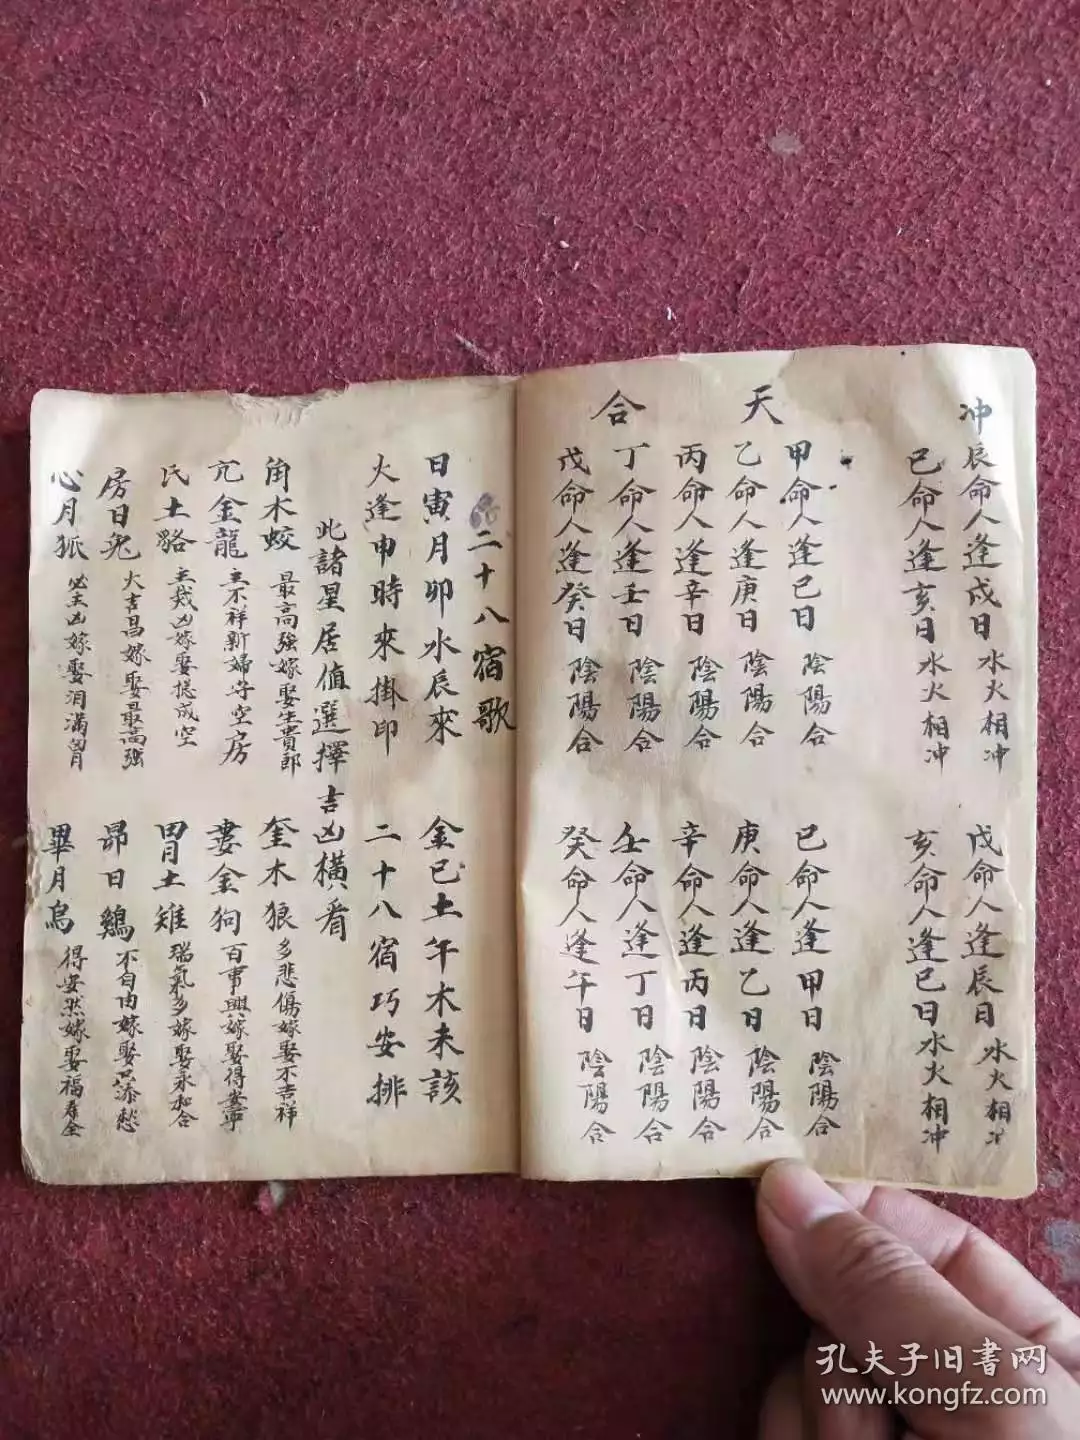 冲
辰命人逢戌日 水火相冲
戌命人逢辰日 水火相冲
巳命人逢亥日 水火相冲
亥命人逢巳日 水火相冲
天合
甲命人逢己日 陰陽合
己命人逢甲日 陰陽合
乙命人逢庚日 陰陽合
庚命人逢乙日 陰陽合
丙命人逢辛日 陰陽合
辛命人逢丙日 陰陽合
丁命人逢壬日 陰陽合
壬命人逢丁日 陰陽合
戊命人逢癸日 陰陽合
癸命人逢午日 陰陽合
二十八宿歌
日寅月卯水辰來 金巳土午木未該
火逢申時來掛印 二十八宿巧安排
此諸星居值選擇吉凶橫看
角木蛟 最高強嫁娶生貴郎
奎木狼 多悲傷嫁娶不吉祥
亢金龍 主不祥新婦守空房
婁金狗 百事興嫁娶得安寧
氐土貉 主裁凶嫁娶捴成空
胃土雉 瑞氣多嫁娶永和合
房日兔 大吉昌嫁娶最高強
昴日鷄 不自由嫁娶只添愁
心月狐 必主凶嫁娶泪滿胷
畢月烏 得安然嫁娶福寿全
孔夫子旧書网
www.kongfz.com